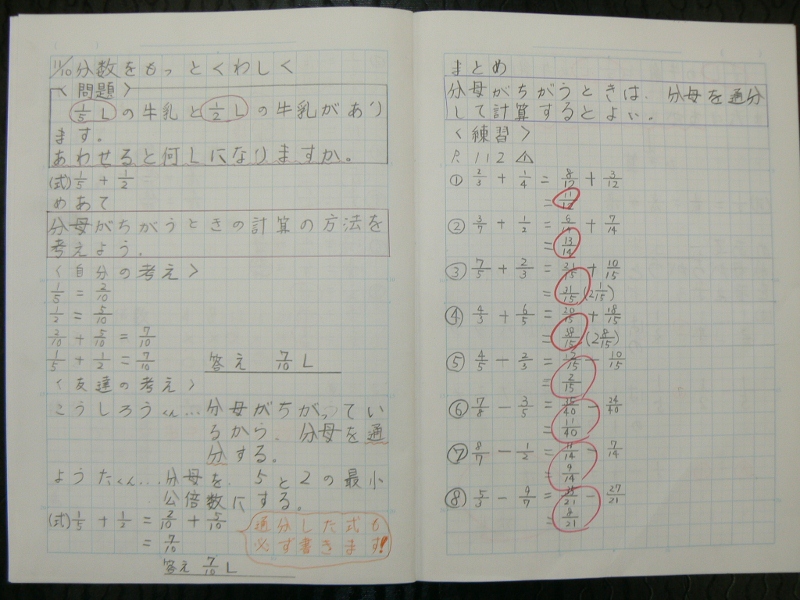 11/10 分数をもっとくわしく
〈問題〉
1/5 L の牛乳と 1/2 L の牛乳があり
ます。
あわせると何Lになりますか。
(式) 1/5 + 1/2
めあて
分母がちがうときの計算の方法を
考えよう。
〈自分の考え〉
1/5 = 2/10
1/2 = 5/10
2/10 + 5/10 = 7/10
1/5 + 1/2 = 7/10 答え 7/10 L
〈友達の考え〉
こうしろうくん…分母がちがってい
るから、分母を通
分する。
ようたくん…分母を、5と2の最小
公倍数にする。
(式) 1/5 + 1/2 = 2/10 + 5/10
= 7/10
答え 7/10 L
通分した式も
必ず書きます!
まとめ
分母がちがうときは、分母を通分
して計算するとよい。
〈練習〉
P.112
① 2/3 + 1/4 = 8/12 + 3/12
= 11/12
② 3/7 + 1/2 = 6/14 + 7/14
= 13/14
③ 7/5 + 2/3 = 21/15 + 10/15
= 31/15 (2 1/15)
④ 4/3 + 6/5 = 20/15 + 18/15
= 38/15 (2 8/15)
⑤ 4/5 − 2/3 = 12/15 − 10/15
= 2/15
⑥ 7/8 − 3/5 = 35/40 − 24/40
= 11/40
⑦ 8/7 − 1/2 = 16/14 − 7/14
= 9/14
⑧ 5/3 − 9/7 = 35/21 − 27/21
= 8/21